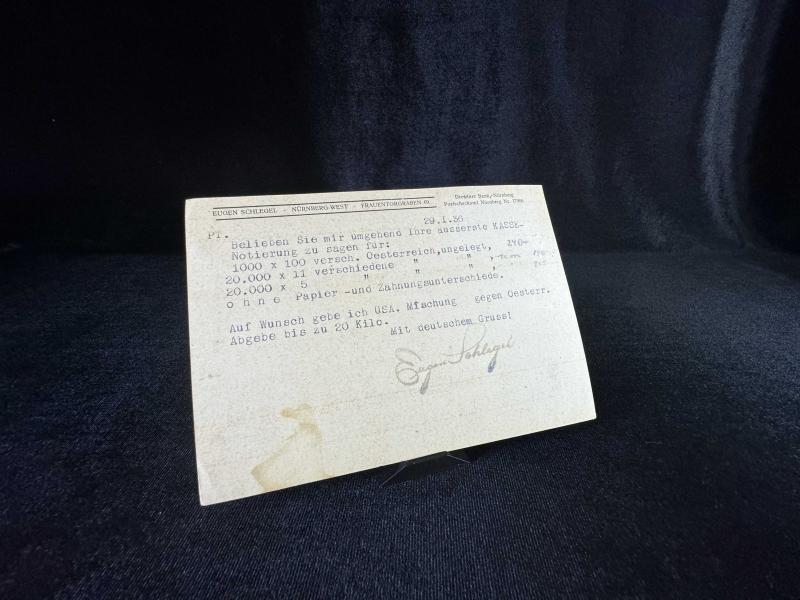 EUGEN SCHLEGEL - NÜRNBERG-WEST - FRAUENTORGRABEN
Dresdner Bank, Nürnberg
Postscheckamt Nürnberg Nr.
29.I.36
PT.
Belieben Sie mir umgehend Ihre äusserste KASSE-
Notierung zu sagen für:
1000 x 100 versch. Oesterreich,ungelegt, 240-
20.000 x 11 verschiedene " " ,
20.000 x 5 " " " ,
o h n e Papier -und Zahnungsunterschiede.
Auf Wunsch gebe ich USA. Mischung gegen Oesterr.
Abgebe bis zu 20 Kilo.
Mit deutschem Gruss!
Eugen Schlegel